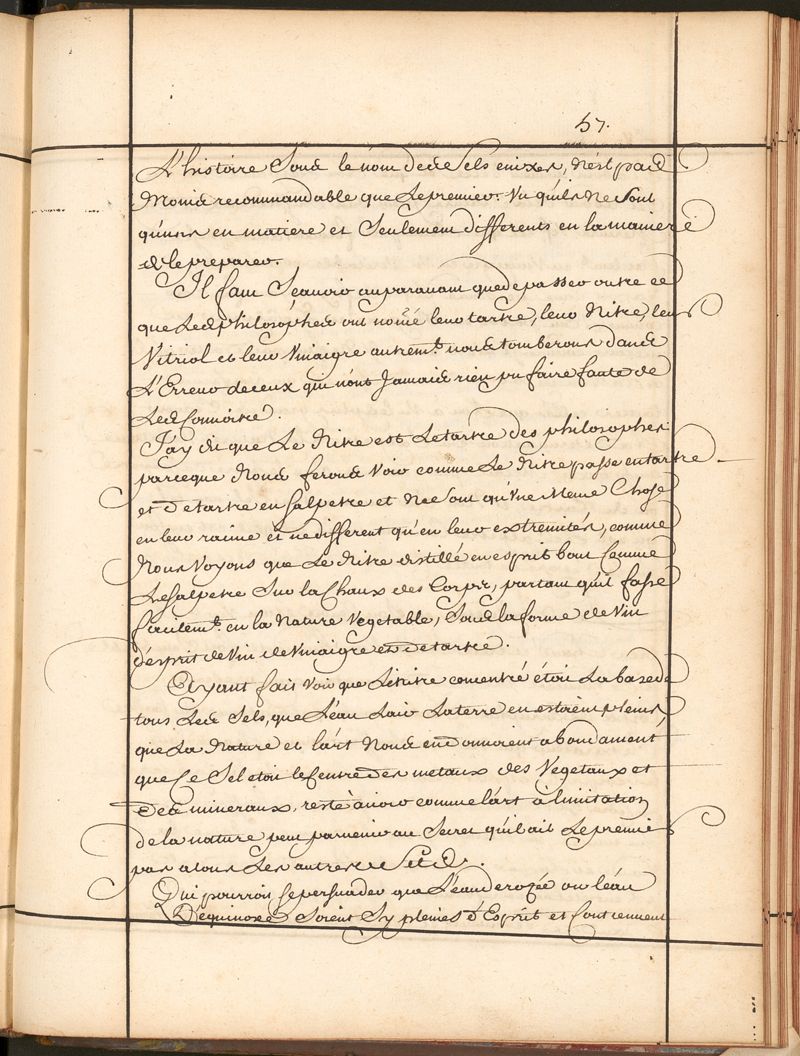 57.
L'histoire Sous le nom de des Sels enixes, n'est pas
Moins recommandable que Le premier. Vu qu'ils ne Sont
qu'uns en matiere et Seulement differents en la maniere
de le preparer.
Il faut Scauoir auparauant que de passer outre ce
que Les philosophes ont nomé leur tartre, leur Nitre, leur
Vitriol et leur Vinaigre autrem.t nous tomberons dans
L'Erreur de ceux qui n'ont Jamais rien pu faire faute de
Les Connoitre.
J'ay dit que Le Nitre est Le tartre des philosophes
parceque Nous ferons Voir comme Le Nitre passe en tartre
et De tartre en Salpetre et Ne Sont qu'Vne Meme Chose
en leur racine et ne different qu'en leur extremités, comme
Nous Voyons que Le Nitre distillé en esprit bout Comme
Le Salpetre Sur la Chaux des Corps, partant qu'il passe
facilem.t en la Nature Vegetable, Sous la forme de Vin
d'esprit de Vin de Vinaigre et De tartre.
Ayant fait Voir que Le Nitre concentré étoit La base de
tous Les Sels, que L'eau Lair La terre en estoient pleins
que La Nature et l'art Nous en Donnoient abondament
que Ce Sel etoit le Centre Des metaux des Vegetaux et
Des mineraux, reste à voir comme l'art à limitation
de la nature peut paruenir au Secret qu'il ait Le premier
pas a tous Les autres
Qui pourroit Se persuader que L'eau de rozée ou l'eau
D'equinoxe Soient Sy pleines d'Esprit et Contiennent